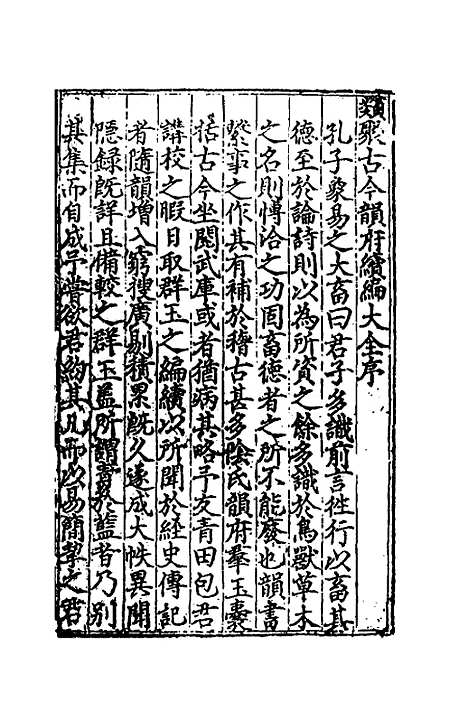 類聚古今韻府續編大全序
孔子象易之大畜曰君子多識前言往行以畜其
德至於論詩則以為所資之餘多識於鳥獸草木
之名則博洽之功固畜德者之所不能廢也韻書
繫事之作其有補於稽古甚多陰氏韻府羣玉囊
括古今坐閱武庫或者猶病其略予友青田包君
講校之暇日取群玉之編續以所聞於経史傳記
者隨韻增入窮搜廣剔積累旣久遂成大帙異聞
隠録旣詳且備較之群玉盖所謂青於藍者乃別
其集而自成予嘗欲君約其凡而以易簡挈之君